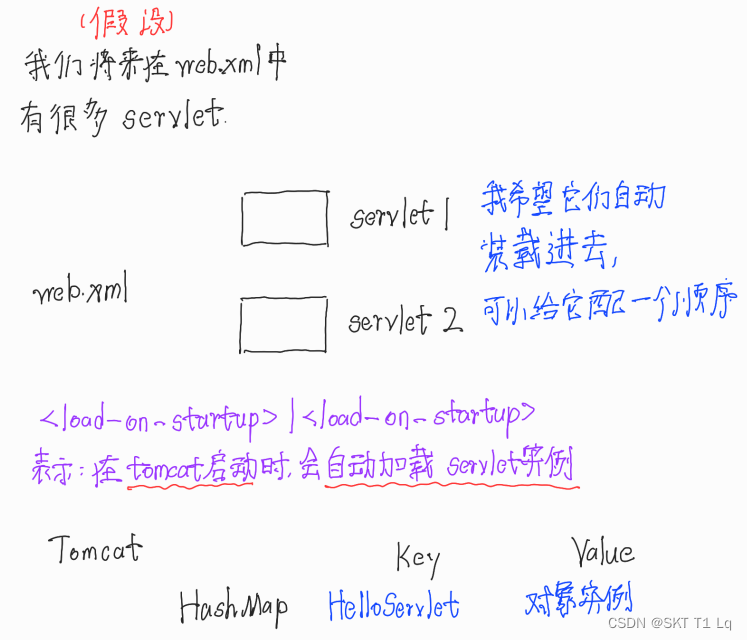 (假设)
我们将来在web.xml中
有很多 servlet.
servlet 1
我希望它们自动
装载进去,
web.xml
servlet 2
可以给它配一个顺序
<load-on-startup>1<load-on-startup>
表示:在tomcat启动时,会自动加载 servlet实例
Tomcat
Key
Value
HashMap
HelloServlet
对象实例
CSDN @SKT T1 Lq